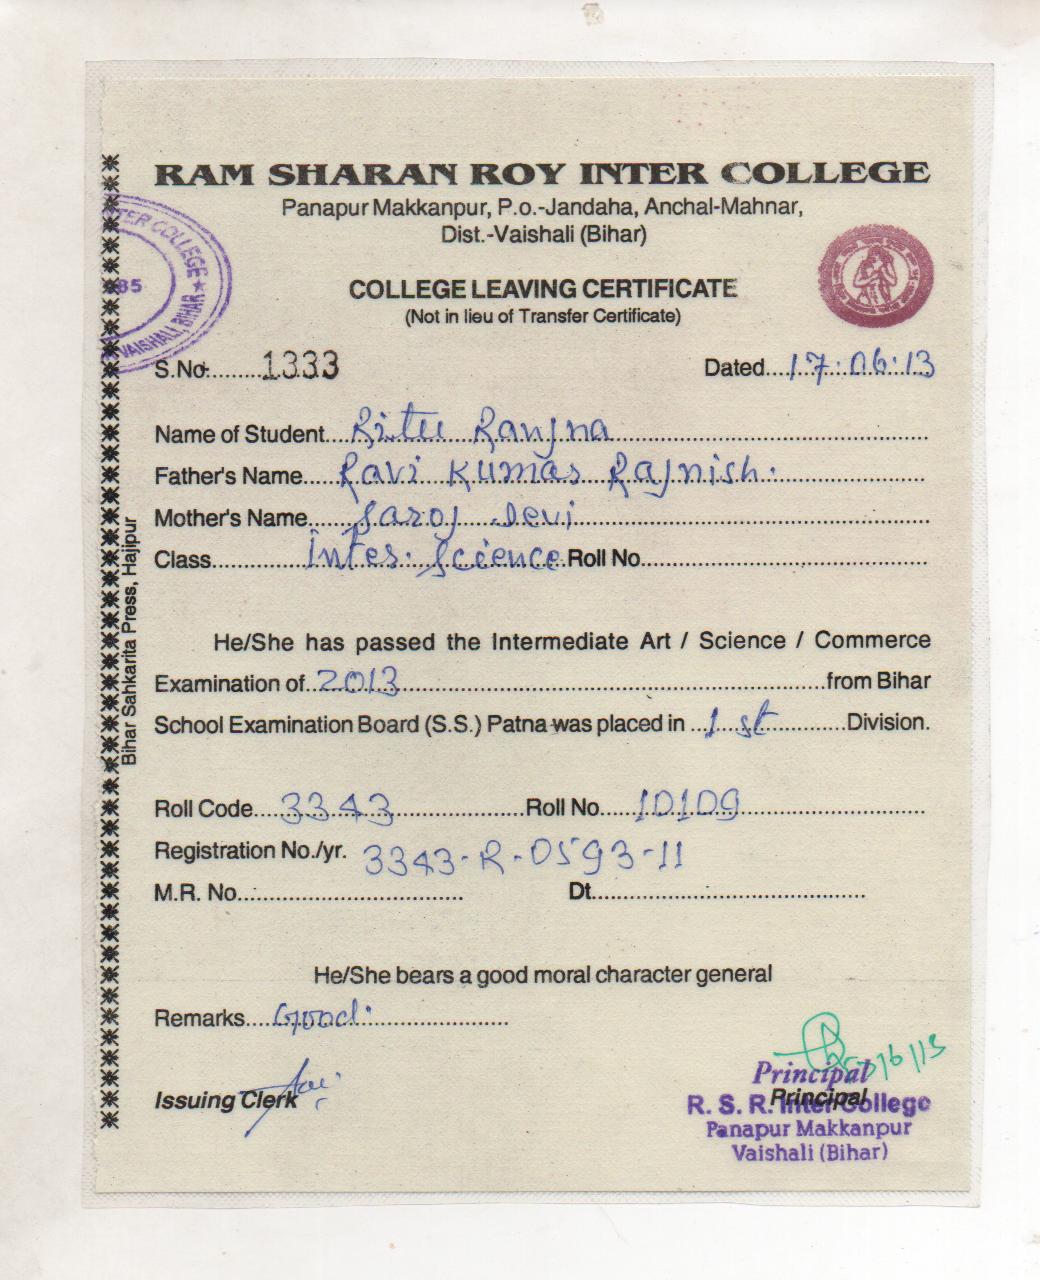 RAM SHARAN ROY INTER COLLEGE
Panapur Makkanpur, P.o.-Jandaha, Anchal-Mahnar,
Dist.-Vaishali (Bihar)
TER COLLEGE ★
85
VAISHALI, BIHAR
COLLEGE LEAVING CERTIFICATE
(Not in lieu of Transfer Certificate)
S.No. 1333 Dated 17.06.13
Name of Student Ritu Ranjna
Father's Name Ravi Kumar Rajnish.
Mother's Name Saroj Devi
Class Inter. Science Roll No.
He/She has passed the Intermediate Art / Science / Commerce
Examination of 2013 from Bihar
School Examination Board (S.S.) Patna was placed in 1st Division.
Roll Code 3343 Roll No. 10109
Registration No./yr. 3343-R-0593-11
M.R. No. Dt.
He/She bears a good moral character general
Remarks Good.
Issuing Clerk
Principal
Principal
R. S. R. Inter College
Panapur Makkanpur
Vaishali (Bihar)
Bihar Sahkarita Press, Hajipur